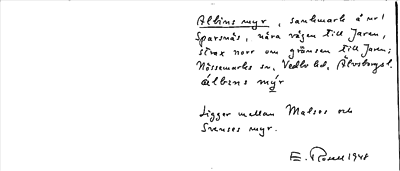 Albins myr, sankmark å nr 1
Sparsnäs, nära vägen till Jaren,
strax norr om gränsen till Jaren;
Nössemarks sn, Vedbo hd, Älvsborgs l.
álbins mýr
Ligger mellan Malsos och
Svenses myr.
E. Rosell 1948